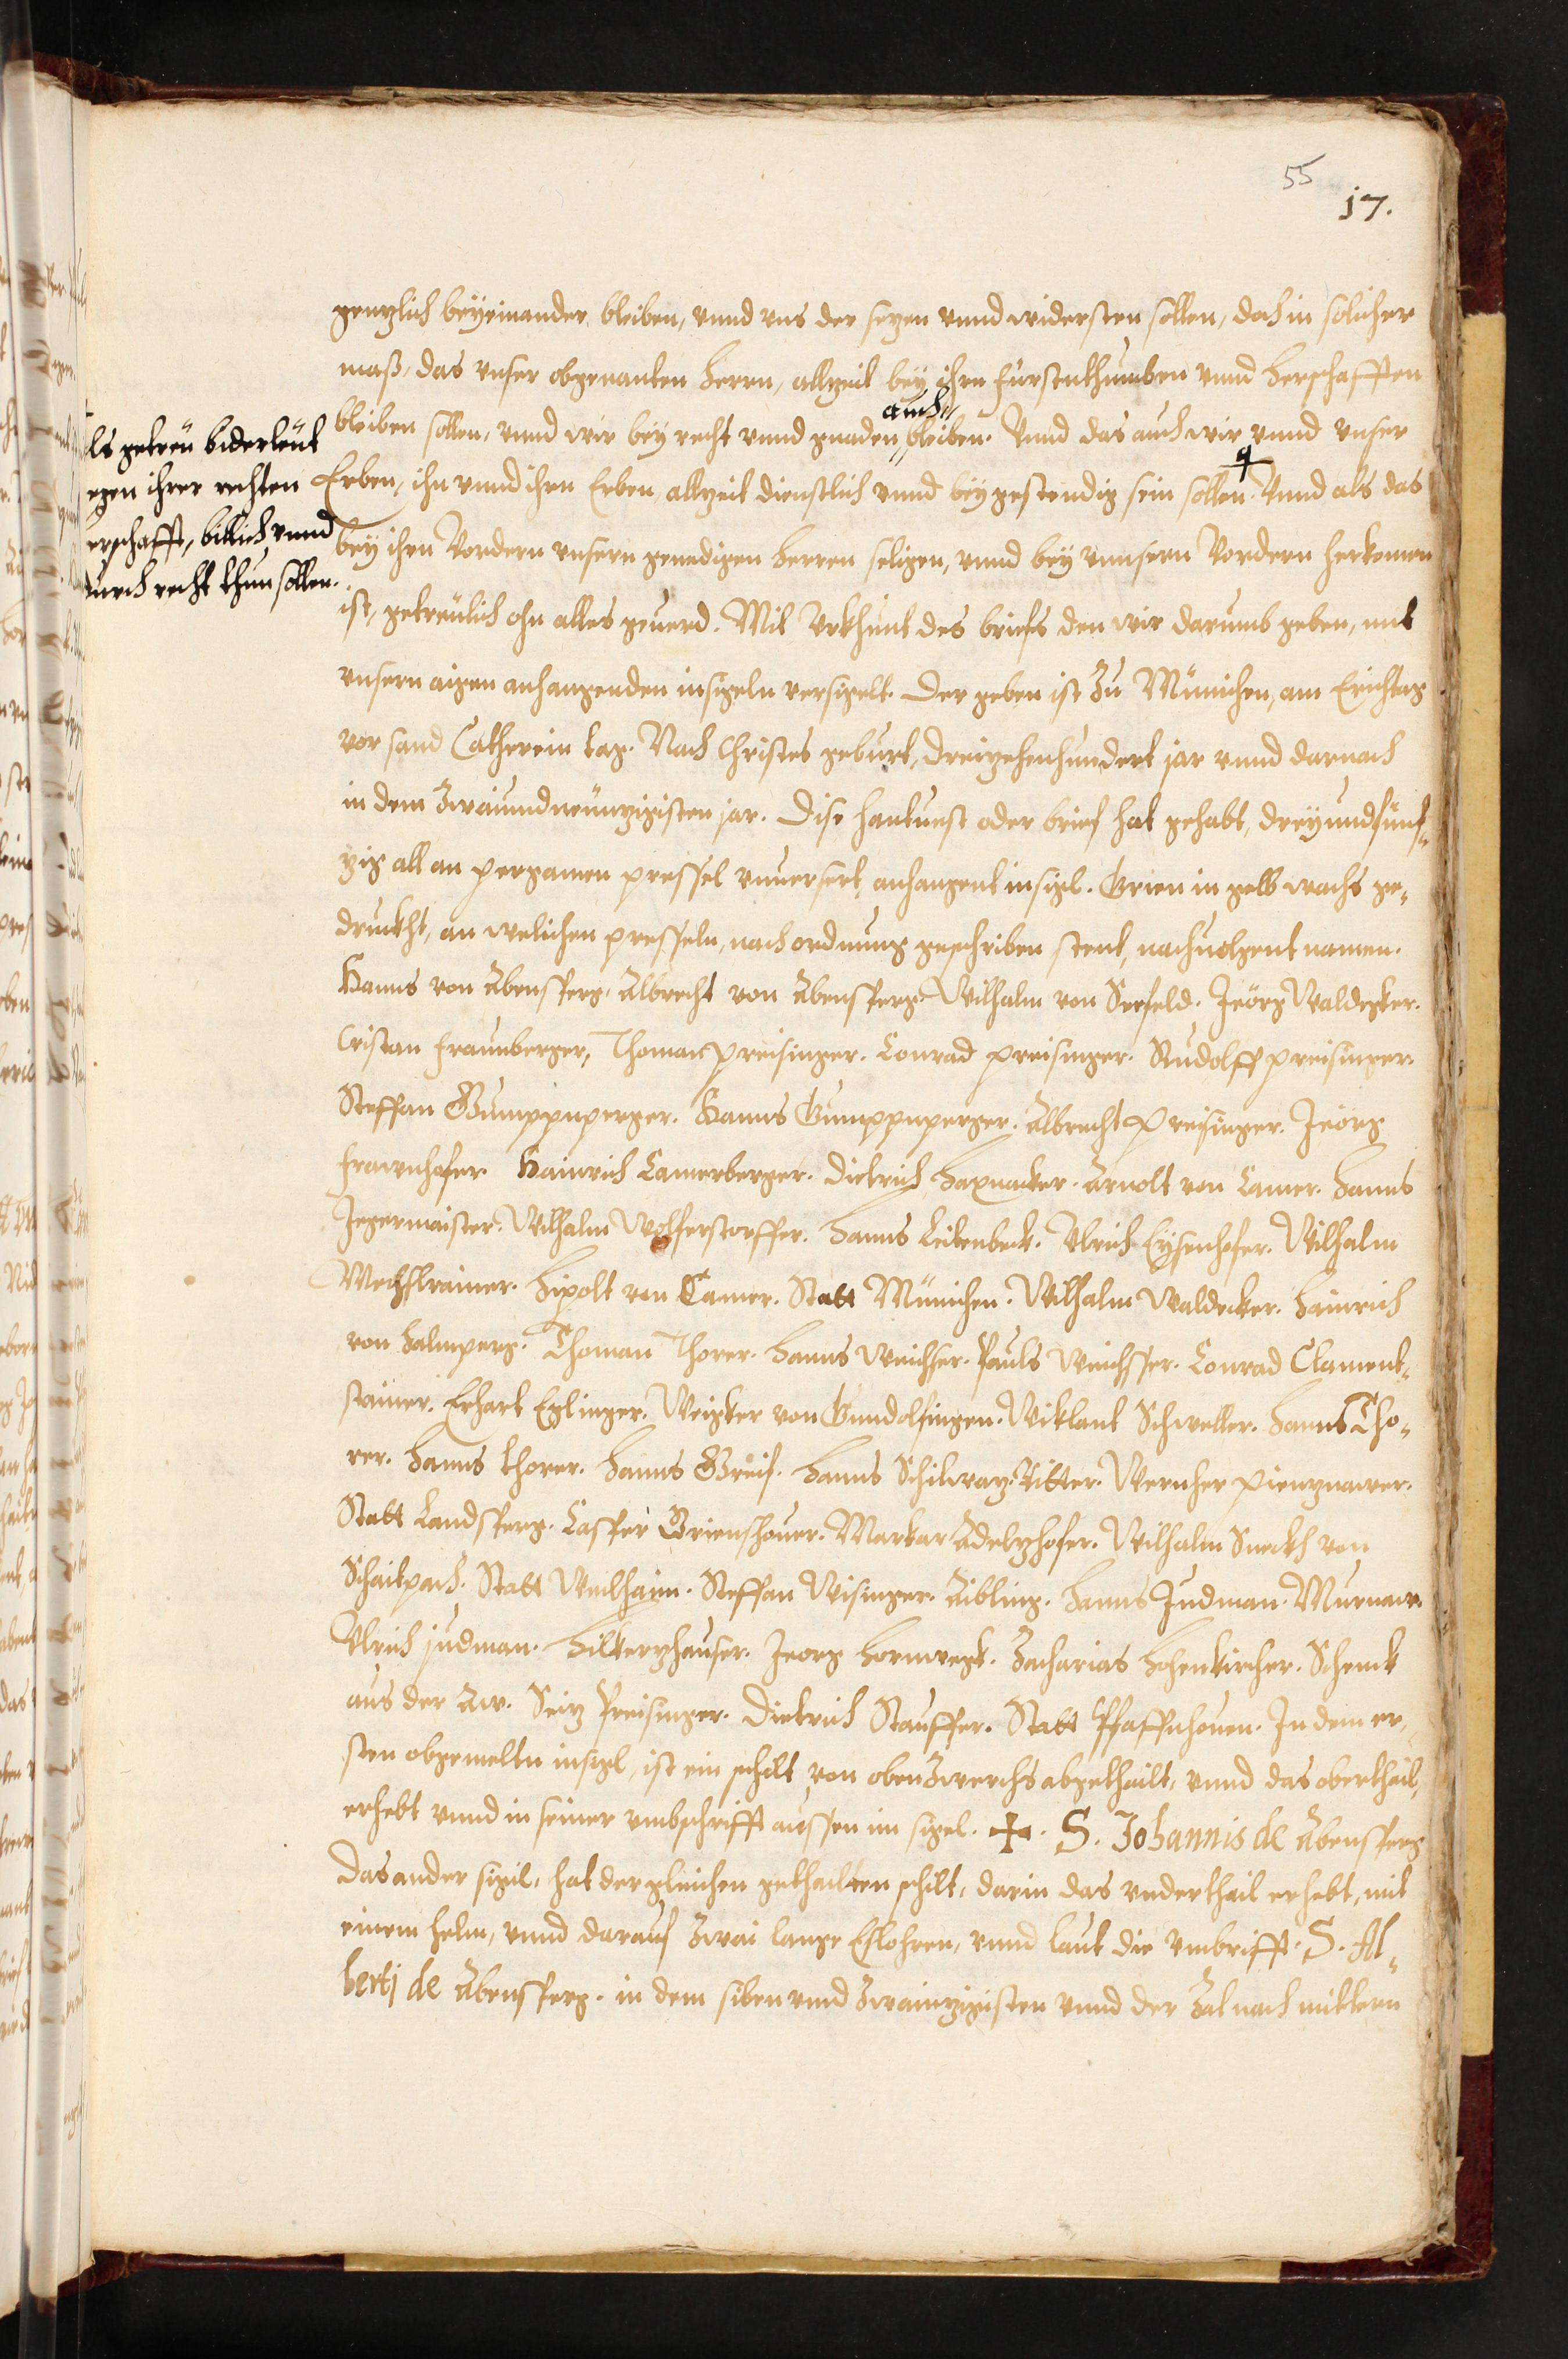 55
17.
gentzlich beyeinander bleiben, vnnd vns der setzen vnnd widersten sollen, doch in solicher
maß, das vnser obgenanten Herrn, allzeit bey ihrn Fürstenthumben vnnd Herschafften
bleiben sollen, vnnd wir bey recht vnnd gnaden auch bleiben. Vnnd das auch wir vnnd vnser
Erben, ihn vnnd ihrn Erben, allzeit dienstlich vnnd beygestendig sein sollen. Vnnd als das
als getreu biderleut
gegen ihrer rechten
Herschafft, billich vnnd
durch recht thun sollen.
bey ihrn Vordern vnsern genedigen Herren seligen, vnnd bey vnnsern Vordern herkomen
ist, getreulich ohn alles geuerd. Mit Vrkhunt des briefs den wir darumb geben, mit
vnsern aigen anhangenden insigeln versigelt. Der geben ist Zu München, am Erichtag
vor sand Catherein tag. Nach Christes geburt, dreizehenhundert jar vnnd darnach
in dem Zwaiundneunzigisten jar. Dise hantuest oder brief hat gehabt, dreyundfünf-
zig all an pergamen pressel vnuersert, anhangent insigl. Grien in gelb wachs ge-
druckht, an welichen presseln, nach ordnung geschriben stent, nachuolgent namen.
Hanns von Äbensperg. Albrecht von Äbensperg. Wilhalm von Seefeld. Jeörg Waldegker.
Cristan Fraunberger, Thoman Preisinger. Conrad Preisinger. Rudolff Preisinger.
Steffan Gumppnperger. Hanns Gumppnperger. Albrecht Preisinger. Jeörg
Frawnhofer. Hainrich Camerberger. Dietrich Haxnacker. Arnolt von Camer. Hanns
Jegermaister. Wilhalm Wolferstorffer. Hanns Leitenbeck. Vlrich Eysenhofer. Wilhalm
Mechslrainer. Hipolt von Camer. Statt München. Wilhalm Waldecker. Hainrich
von Halmperg. Thoman Thorer. Hanns Weichser. Pauls Weichser. Conrad Clament-
stainer. Erhart Eglinger. Weigker von Gundolfingen. Wiklant Schweller. Hanns Tho-
rer. Hanns Thorer. Hanns Greif. Hanns Schilwaz. Ritter. Wernher Pienznawer.
Statt Landsperg. Casper Grienshouer. Markar Adelzhofer. Wilhalm Sneckh von
Schaitpach. Statt Weilhaim. Steffan Wisinger. Aibling. Hanns Judman. Murnaw.
Vlrich Judman. Hilkerzhauser. Jeorg Hornnegk. Zacharias Hohenkircher. Schenck
aus der Aw. Seiz Preisinger. Dietrich Stauffer. Statt Pfaffnhouen. In dem er-
sten obgemeltn insigl, ist ein schilt von oben Zwerchs abgethailt, vnnd das oberthail,
erhebt vnnd in seiner vmbschrifft aussen im sigel. ✠. S. Johannis de Äbensperg
Das ander sigil, hat dergleichen gethailten schilt, darin das vnderthail erhebt, mit
einem helm, vnnd darauf Zwai lange Eslohren, vnnd laut die vmbrifft. S. Al-
berti de Äbensperg. in dem siben vnnd Zwainzigisten vnnd der Zal nach mittern